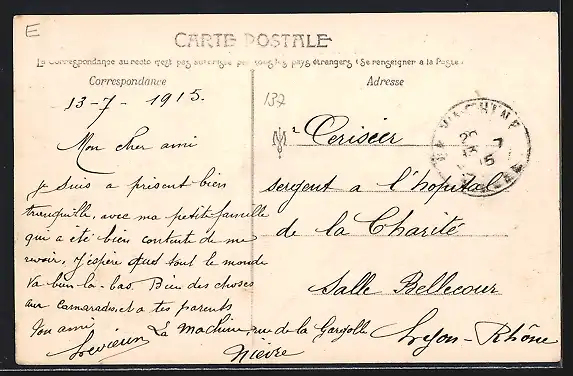 E
CARTE POSTALE
La Correspondance au recto n'est pas autorisée par tous les pays étrangers (Se renseigner à la Poste)
Correspondance
13-7-1915.
Mon cher ami
Je suis a présent bien
tranquille, avec ma petite famille
qui a été bien contente de me
revoir. J'espère que tout le monde
va bien la-bas. Bien des choses
aux camarades, et a tes parents
Ton ami
La Machine, rue de la
Nièvre
Adresse
137
Mr Cerisier
sergent a l'hopital
de la Charité
Salle Bellecour
Lyon-Rhône
LA MACHINE
20 7
15
NIÈVRE